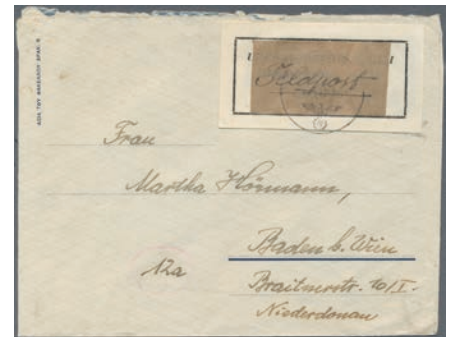 Feldpost
Frau
Martha Hörmann,
Baden b. Wien
12a
Braitnerstr. 10/I.
Niederdonau